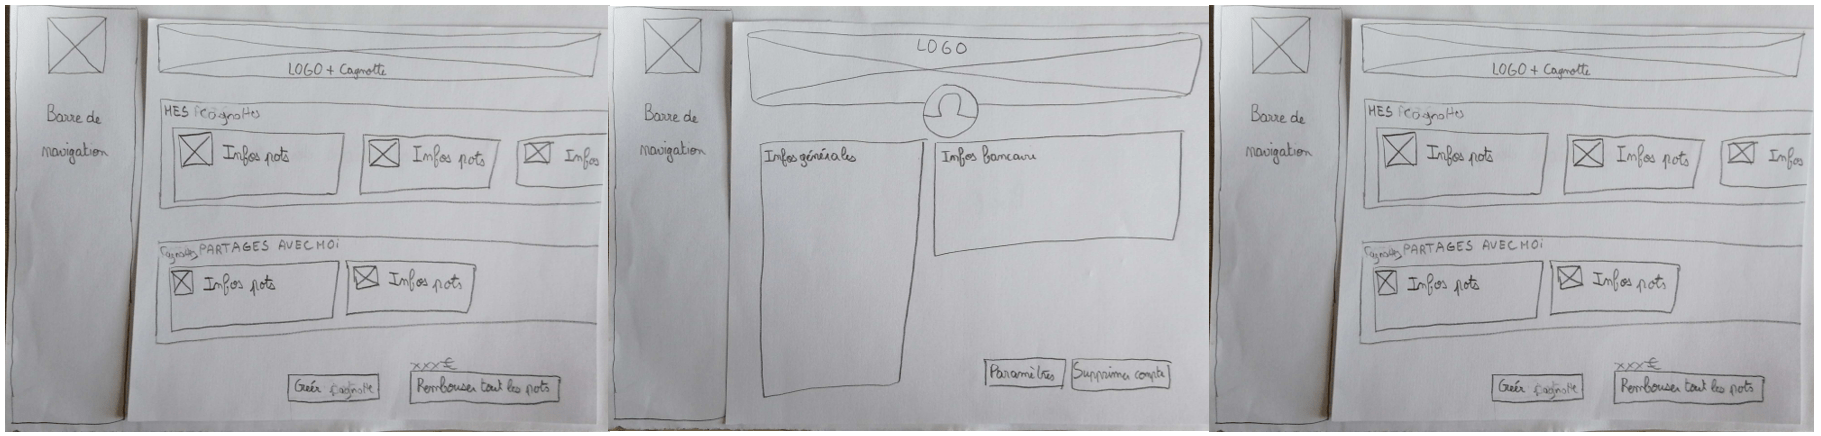 Barre de
navigation
LOGO + Cagnotte
MES Cagnottes
Infos pots
Infos pots
Infos
Cagnottes PARTAGES AVEC MOI
Infos pots
Infos pots
Créér Cagnotte
xxx€
Rembourser tout les pots
Barre de
navigation
LOGO
Infos générales
Infos bancaire
Paramètres
Supprimer compte
Barre de
navigation
LOGO + Cagnotte
MES Cagnottes
Infos pots
Infos pots
Infos
Cagnottes PARTAGES AVEC MOI
Infos pots
Infos pots
Créér Cagnotte
xxx€
Rembourser tout les pots